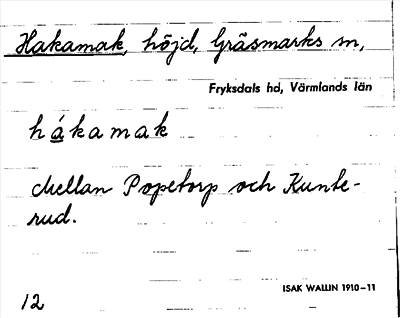 Hakamak, höjd, Gräsmarks sn,
Fryksdals hd, Värmlands län
hákamak
Mellan Popetorp och Kunte-
rud.
ISAK WALLIN 1910-11
12